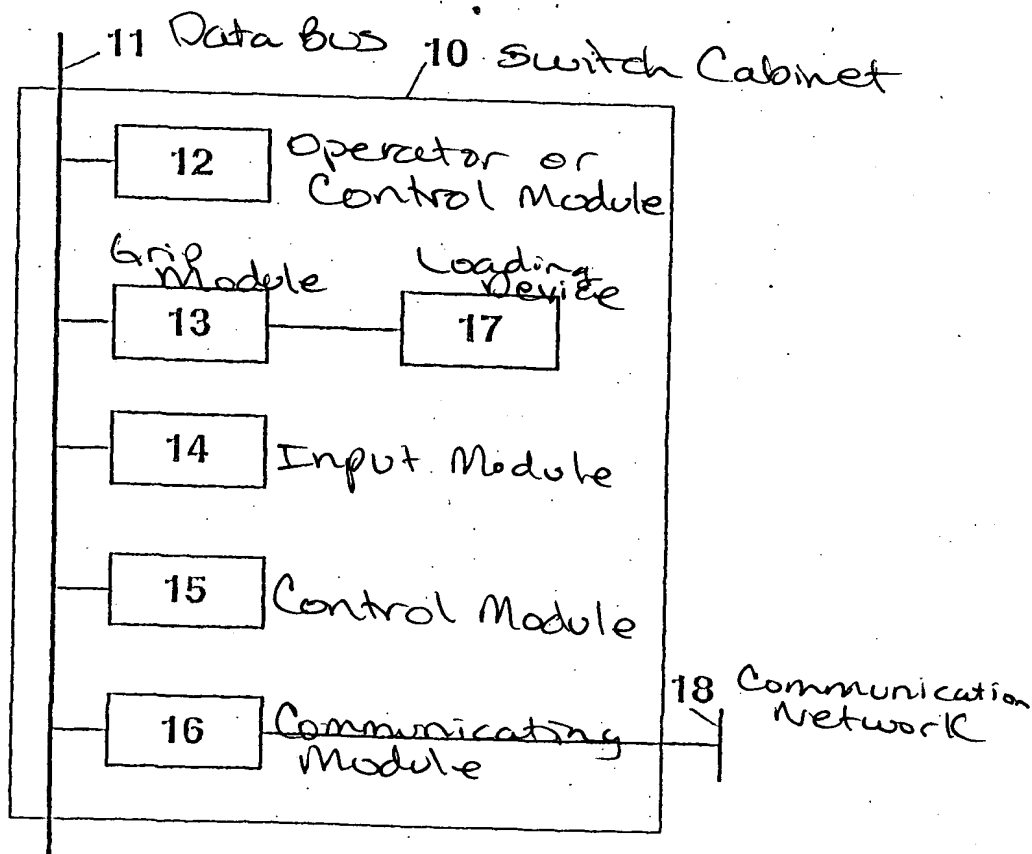 11 Data Bus 10 Switch Cabinet
12 Operator or
Control Module
Grip
Module
Loading
Device
13 17
14 Input Module
15 Control Module
18 Communication
Network
16 Communicating
Module